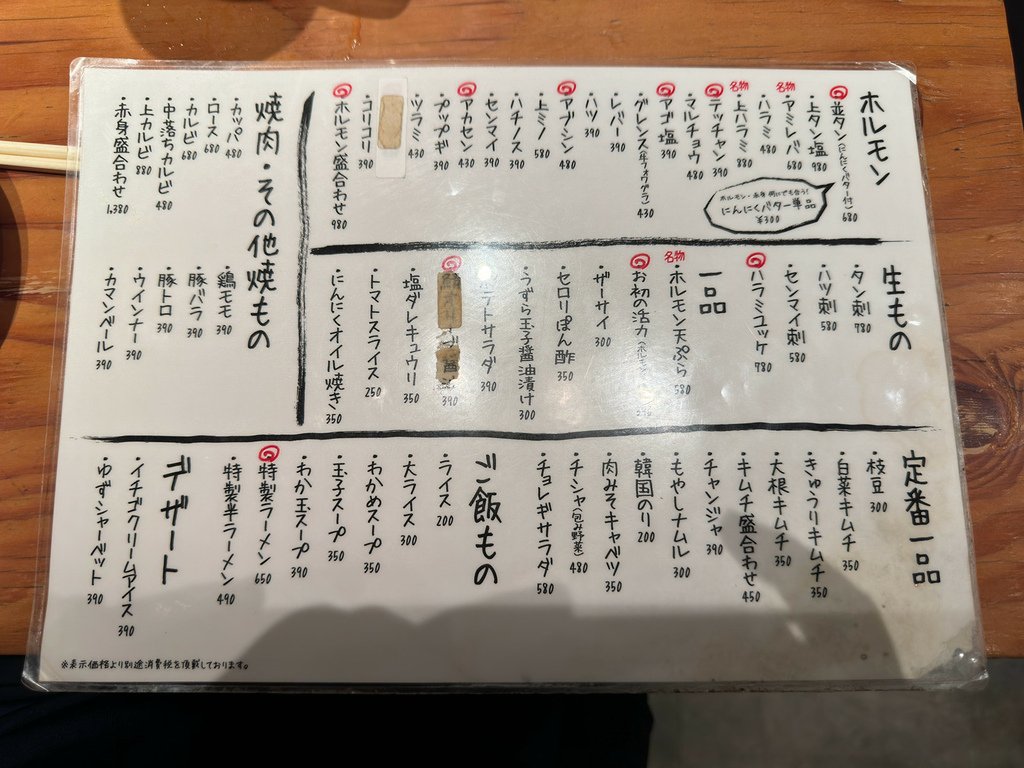 ホルモン
・並タン(にんにくバター付) 680
・上タン塩 980
名物
・アミレバ 680
・ハラミ 480
名物
・上ハラミ 880
・テッチャン 390
・マルチョウ 480
・アゴ塩 390
・グレンス(牛フォアグラ) 430
・レバー 390
・ハツ 390
・アブシン 480
・上ミノ 580
・ハチノス 390
・センマイ 390
・アカセン 430
・プップギ 390
・ツラミ 430
・コリコリ 390
・ホルモン盛合わせ 980
ホルモン・赤身 何にでも合う!
にんにくバター単品
¥300
生もの
・タン刺 780
・ハツ刺 580
・センマイ刺 580
・ハラミユッケ 780
一品
名物
・ホルモン天ぷら 580
・お初の活力
・ザーサイ 300
・セロリぽん酢 350
・うずら玉子醤油漬け 300
ポテトサラダ 390
390
・塩ダレキュウリ 350
・トマトスライス 250
・にんにくオイル焼き 350
焼肉・その他焼もの
・カッパ 480
・ロース 680
・カルビ 680
・中落ちカルビ 480
・上カルビ 880
・赤身盛合わせ 1,380
・鶏モモ 390
・豚バラ 390
・豚トロ 390
・ウインナー 390
・カマンベール 390
定番一品
・枝豆 300
・白菜キムチ 350
・きゅうりキムチ 350
・大根キムチ 350
・キムチ盛合わせ 450
・チャンジャ 390
・もやしナムル 300
・韓国のり 200
・肉みそキャベツ 350
・チシャ(包み野菜) 480
・チョレギサラダ 580
ご飯もの
・ライス 200
・大ライス 300
・わかめスープ 350
・玉子スープ 350
・わか玉スープ 390
・特製ラーメン 650
・特製半ラーメン 490
デザート
・イチゴクリームアイス 390
・ゆずシャーベット 390
※表示価格より別途消費税を頂戴しております。